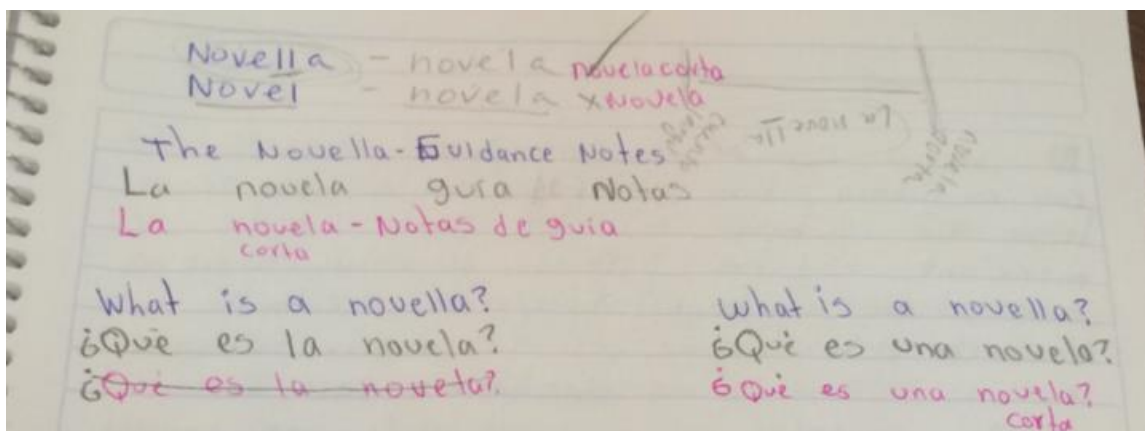 Novella - novela novela corta
Novel - novela x Novela
La novella
novela corta
The Novella - Guidance Notes
La novela guía Notas
La novela - Notas de guía
corta
What is a novella?
¿Qué es la novela?
¿Qué es la novela?
What is a novella?
¿Qué es una novela?
¿Qué es una novela?
corta